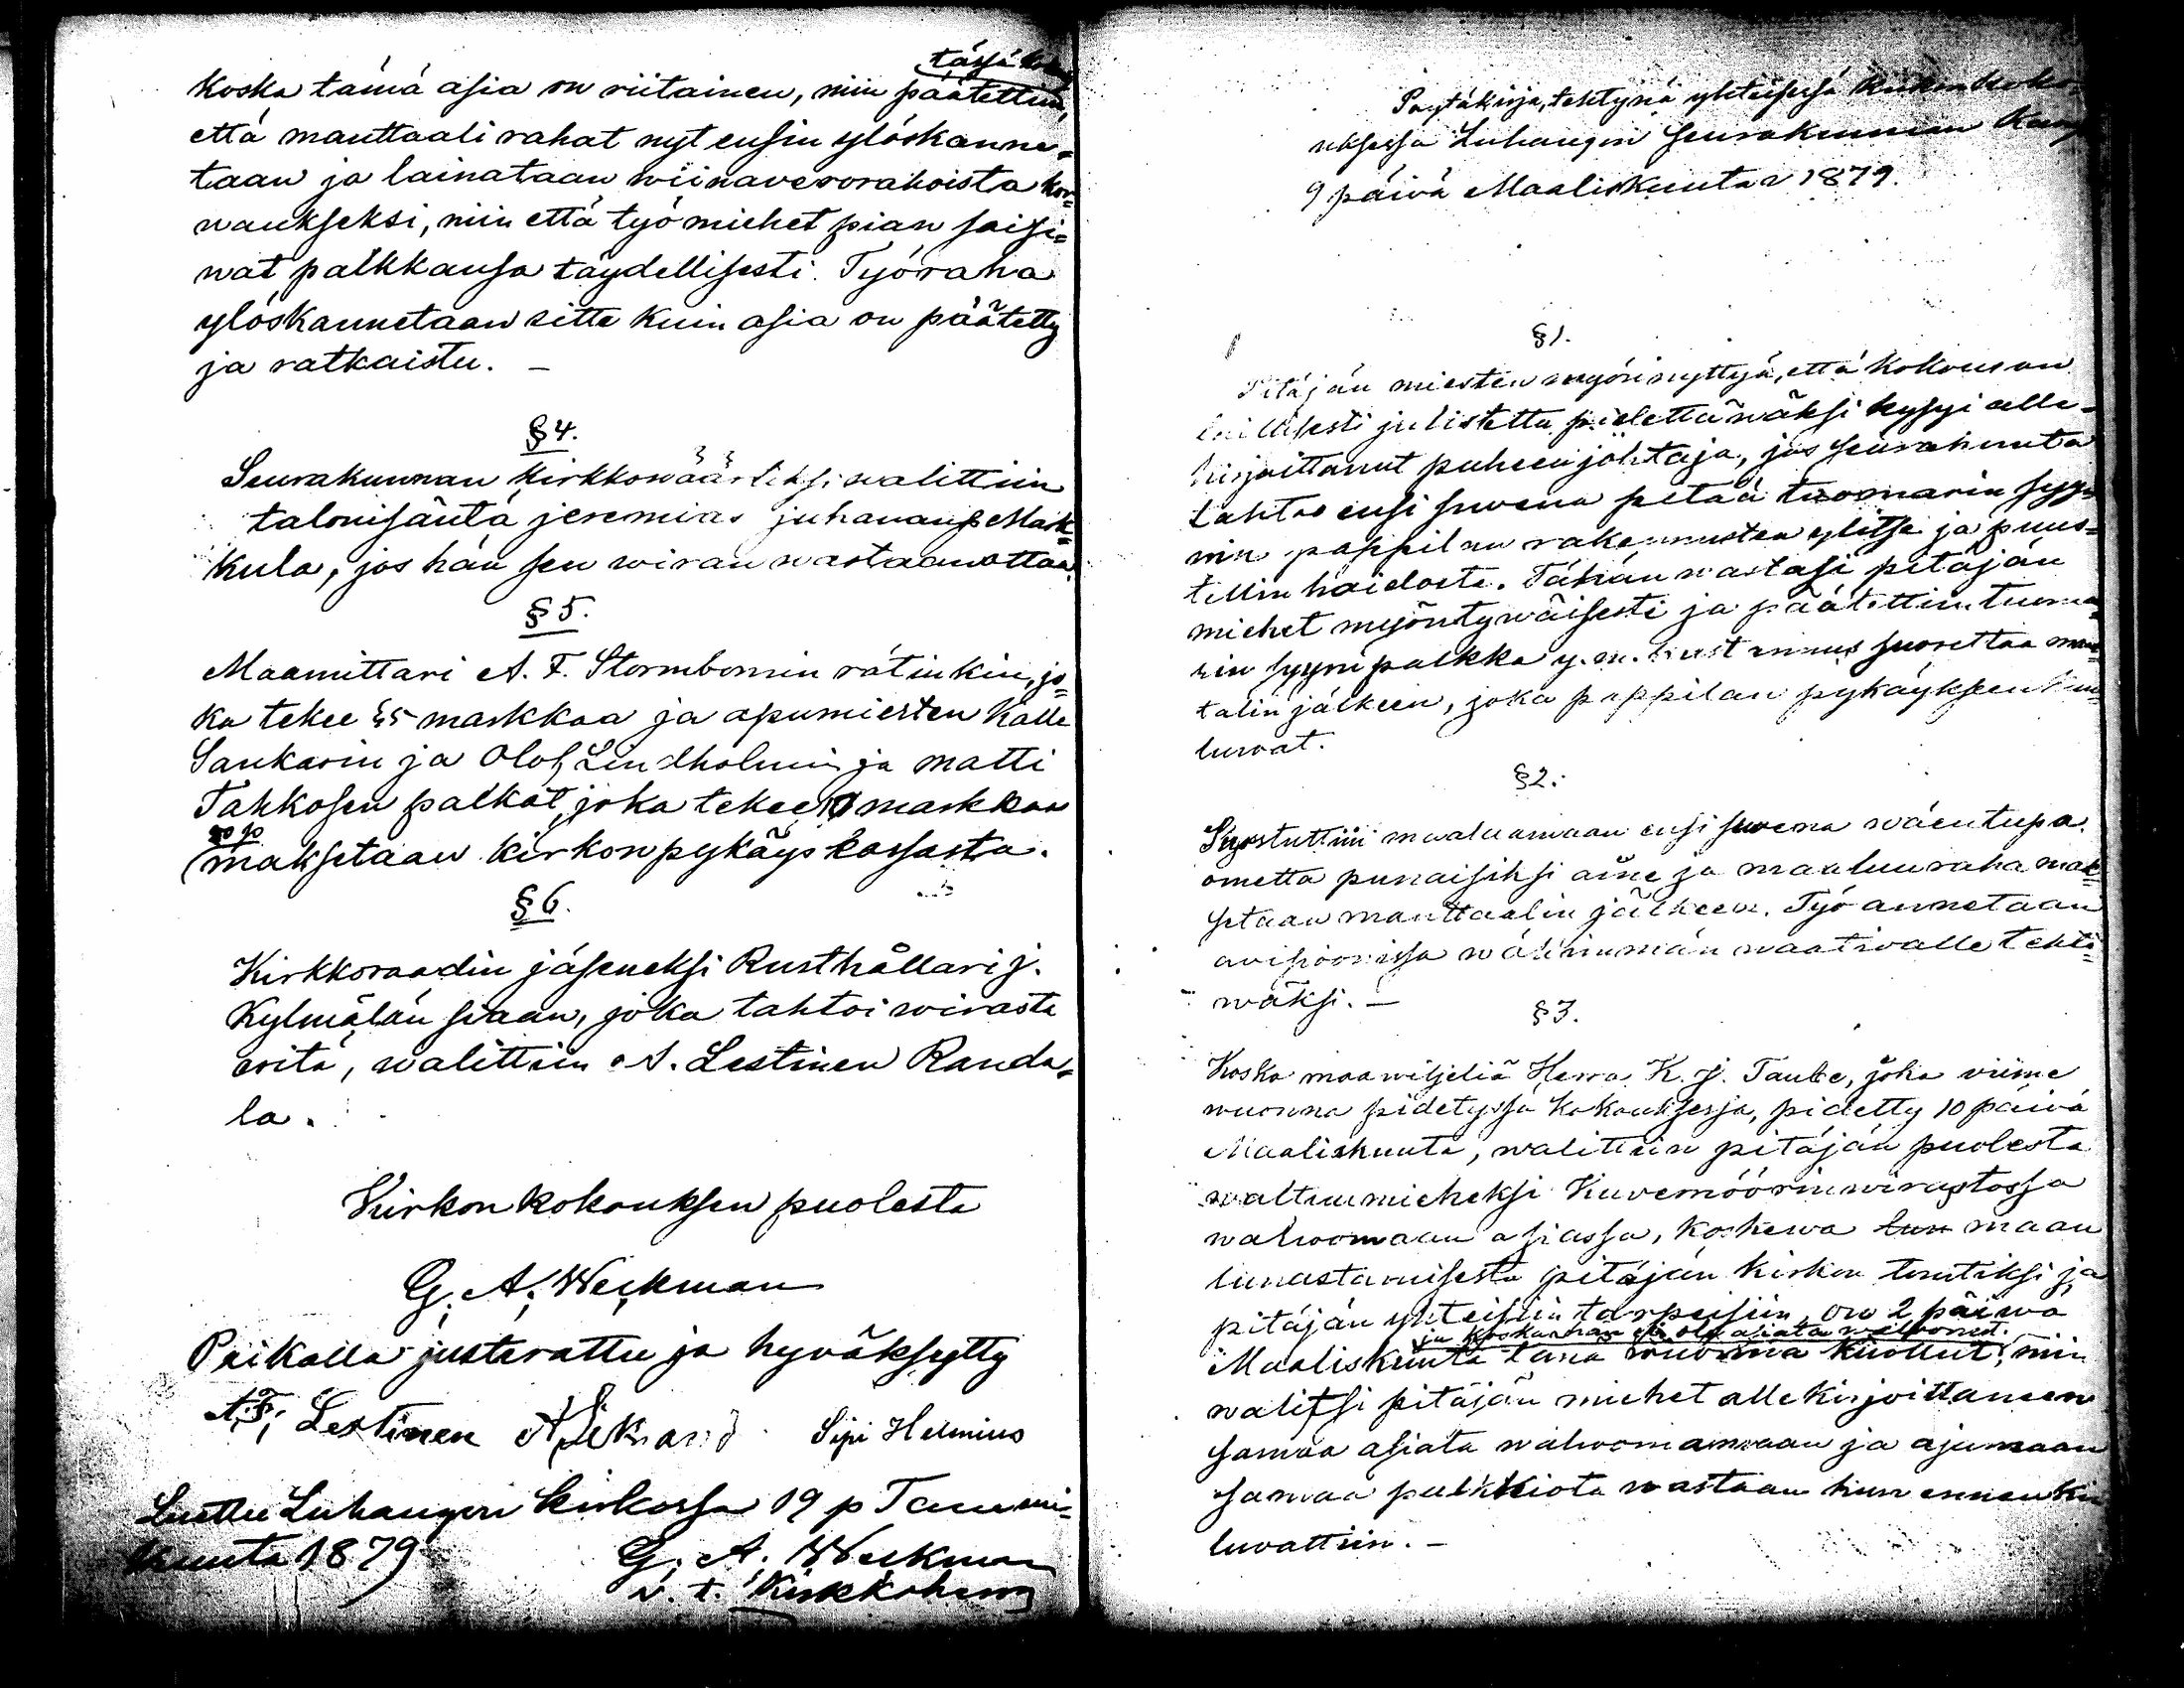 tässä
Koska tämä asia on riitainen, niin päätettiin,
että manttaali rahat nyt ensin ylöskanne=
taan ja lainataan wiinaverorahoista kor=
waukseksi, niin että työmiehet pian saisi=
wat palkkansa täydellisesti. Työraha
ylöskannetaan sitte kuin asia on päätetty
ja ratkaistu. –
§ 4.
Seurakunnan kirkkowäärtiksi walittiin
talonisäntä jeremias juhananp. Mark=
kula, jos hän sen wiran wastaanottaa.
§ 5.
Maamittari A. F. Stormbomin rätinkin, jo=
ka tekee 45 markkaa ja apumiesten Kalle
Sankarin ja Olof Lindholmin ja matti
Tahkosen palkat, joka tekee markkaa
maksetaan kirkonpykäys kassasta.
§ 6.
Kirkkoraadin jäseneksi Rusthållari J.
Kylmälän siaan, joka tahtoi wirasta
eritä, walittiin A. Lestinen Randa=
la.
Kirkonkokouksen puolesta
G. A. Weckman
Paikalla justerattu ja hywäksytty
A. F. Lestinen Sipi Helminus
Luettu Luhangon kirkossa 19 p Tammi=
kuuta 1879
G. A. Weckman
v. t. Kirkkoherra
Pöytäkirja, tehtynä yhteisessä Kirkonkoko=
uksessa Luhangon seurakunnan
9 päivä Maaliskuuta 1879.
§ 1.
Pitäjän miesten myönnyttyä, että kokous on
laillisesti julistettu pidettäwäksi kysyi alle=
kirjoittanut puheenjohtaja, jos seurakunta
tahtoo ensi suwena pitää tuomarin syy=
nin pappilan rakennusten ylitse ja puus=
tellin hoidosta. Tähän wastasi pitäjän
miehet myöntywäisesti ja päätettiin tuoma=
rin syyni palkka y. m. kustannus suorettaa man=
talin jälkeen, joka pappilan pykäykseen kuu=
luwat.
§ 2.
Suostuttiin maaluamaan ensi suwena wäentupa
ometta punaisiksi aine ja maaluuraha mak=
setaan manttaalin jälkeen. Työ annetaan
avisioonissa wähimmän waativalle tehtä=
wäksi. –
§ 3.
Koska maawiljeliä Herra K. J. Taube, joka viime
wuonna pidetyssä kokouksessa, pidetty 10 päivä
Maaliskuuta, walittiin pitäjän puolesta
waltuumieheksi Kuvernöörinwirastossa
walwomaan asiassa, koskewa lun maan
lunastamisesta pitäjän kirkon tontiksi ja
pitäjän yhteisiin tarpeisiin, on 2 päiwä
ja koska hän ei ole asiata walwonut.
Maaliskuuta tänä wuonna kuollut, niin
walitsi pitäjän miehet allekirjoittaneen
samaa asiata walwomamaan ja ajamaan
samaa palkkiota wastaan kun ennen
luvattiin. –